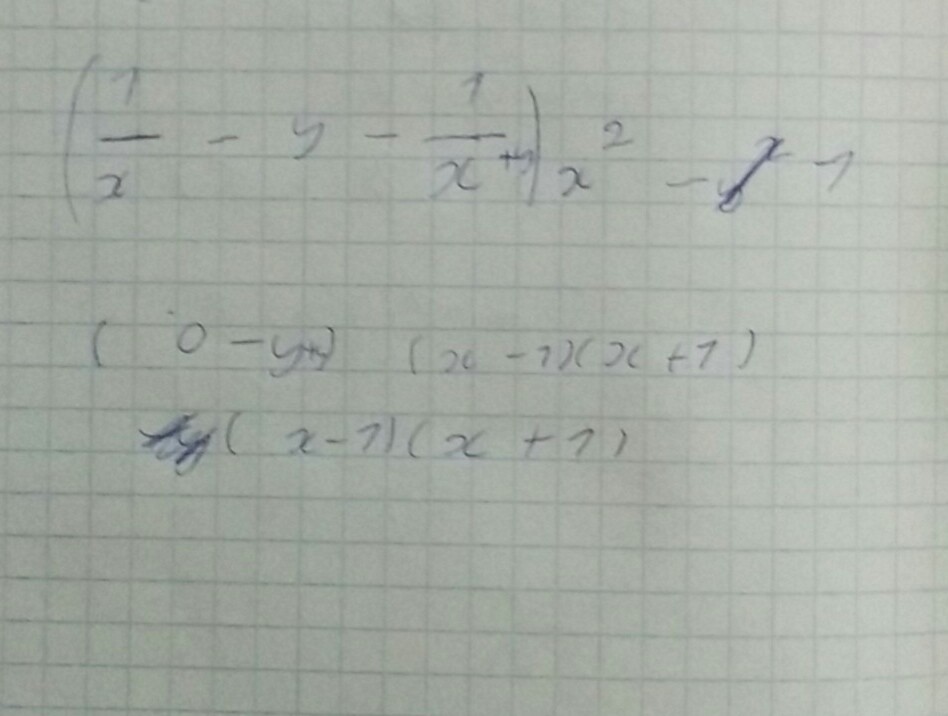 (1/x - y - 1/x + y) x² - x - 1
( 0 - y+y) (x - 1)(x + 1)
( x - 1)(x + 1)